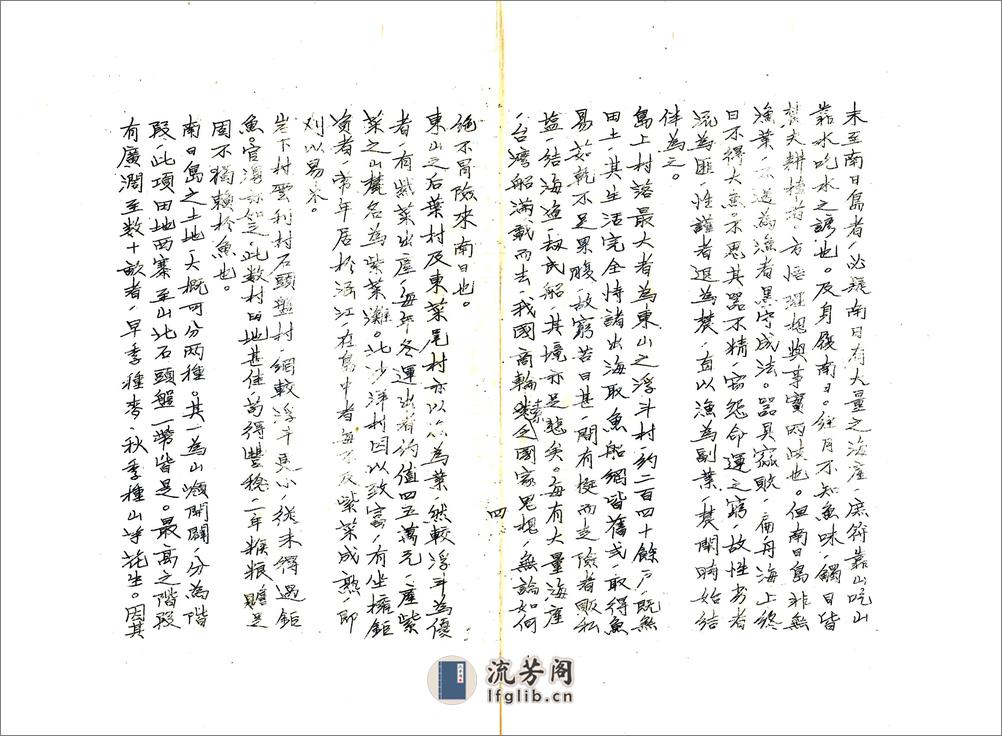 未至南日島者，必疑南日有大量之海產，庶符靠山吃山
靠水吃水之諺也。及身履南日。經月不知魚味，觸目皆
農夫耕種者，方悟理想與事實兩歧也。但南日島非無
漁業，不過為漁者黑守成法。器具窳敗，扁舟海上終
日不得大魚。不思其器不精，寧怨命運之窮，故性劣者
流為匪，性謹者退為農，直以漁為副業，農閒時始結
伴為之。
島上村落最大者為東山之浮斗村，約二百四十餘戶，既無
田土，其生活完全恃諸出海取魚船網皆舊式，取得魚
易茹乾不足果腹，故窮苦日甚，間有梃而走險者販私
盐，結海漁，刼民船，其境亦足悲矣。每有大量海產
，台灣船滿載而去，我國商輪素之國家思想，無論如何
四
絶不冐險來南日也。
東山之后葉村及東菜尾村亦以漁為業，然較浮斗為優
者，有紫菜出產，每年冬運出者約值四五萬元，產紫
菜之山麓名為紫菜灘。北沙洋村因以致富，有坐擁鉅
資者，常年居於涵江，在島中者每及紫菜成熟，即
刈以易米。
岩下村雲利村石頭盤村，網較浮斗更小，從未得過鉅
魚。官澳亦如之，此數村田地甚佳苟得豐稔，一年糇粻贍足
固不獨賴於魚也。
南日島之土地，大概可分兩種。其一為山嶺開闢，分為階
段，此項田地西寨至山北石頭盤一帶皆是。最高之階段
有廣濶至數十畝者，早季種麥，秋季種山芋花生。因其
流芳阁
lfglib.cn